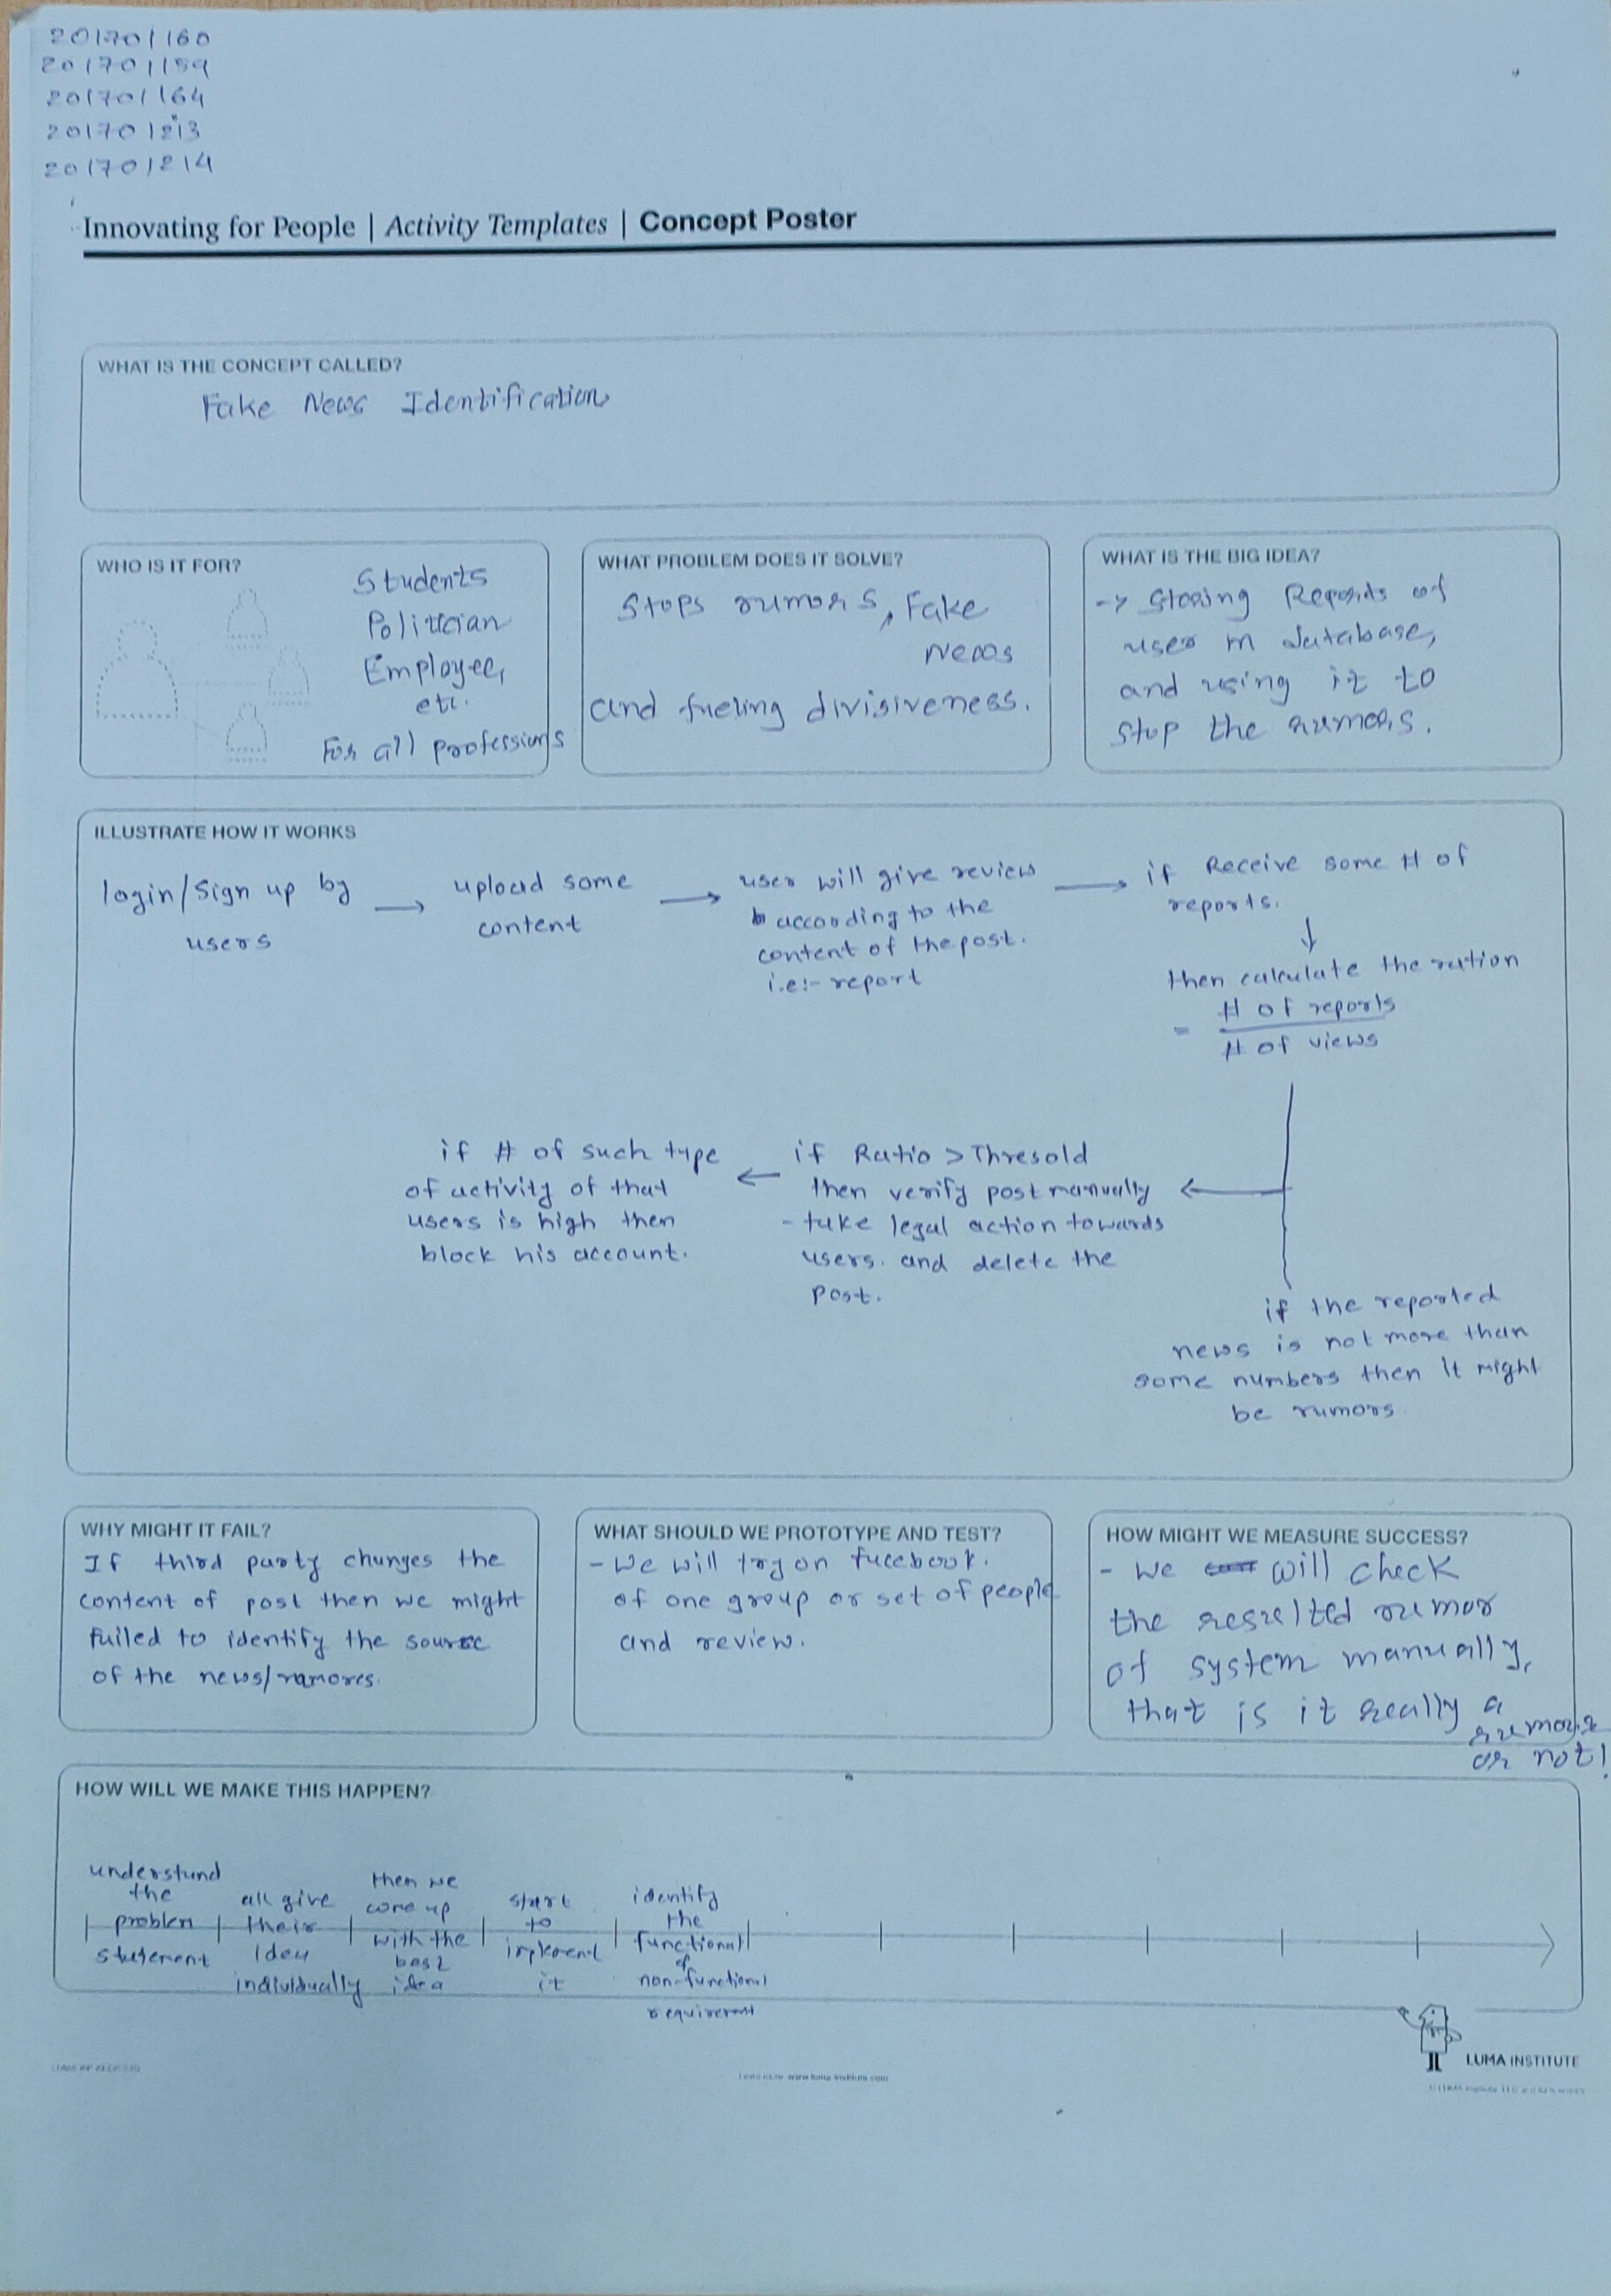 201701160
201701159
201701164
201701213
201701214
Innovating for People | Activity Templates | Concept Poster
WHAT IS THE CONCEPT CALLED?
Fake News Identification
WHO IS IT FOR?
Students
Politician
Employee,
etc.
For all professions
WHAT PROBLEM DOES IT SOLVE?
Stops rumors, Fake
News
and fueling divisiveness.
WHAT IS THE BIG IDEA?
-> Storing Reports of
user in database,
and using it to
stop the rumors.
ILLUSTRATE HOW IT WORKS
login/Sign up by
users
upload some
content
user will give review
according to the
content of the post.
i.e:- report
if Receive some # of
reports.
then calculate the ration
= # of reports
# of views
if Ratio > Thresold
then verify post manually
- take legal action towards
users. and delete the
post.
if # of such type
of activity of that
users is high then
block his account.
if the reported
news is not more than
some numbers then it might
be rumors
WHY MIGHT IT FAIL?
If third party changes the
content of post then we might
failed to identify the source
of the news/rumores.
WHAT SHOULD WE PROTOTYPE AND TEST?
- We will try on facebook.
of one group or set of people
and review.
HOW MIGHT WE MEASURE SUCCESS?
- We will check
the resulted rumor
of system manually,
that is it really a
rumors
or not!
HOW WILL WE MAKE THIS HAPPEN?
understand
the
problem
statement
all give
their
idea
individually
then we
come up
with the
best
idea
start
to
implement
it
identify
the
functional
&
non-functional
requirement
LUMA INSTITUTE